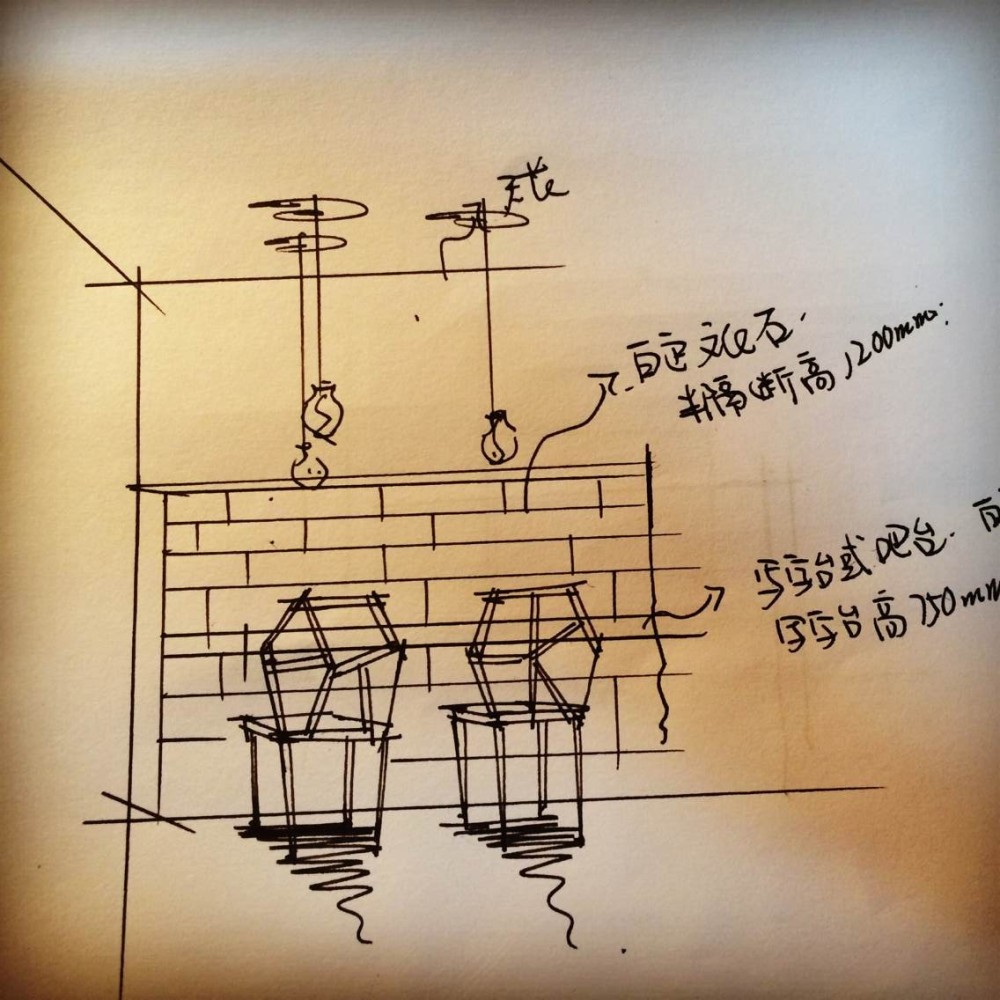 白色文化石.
半隔断高1200mm.
写字台或吧台. 白
写字台高750mm